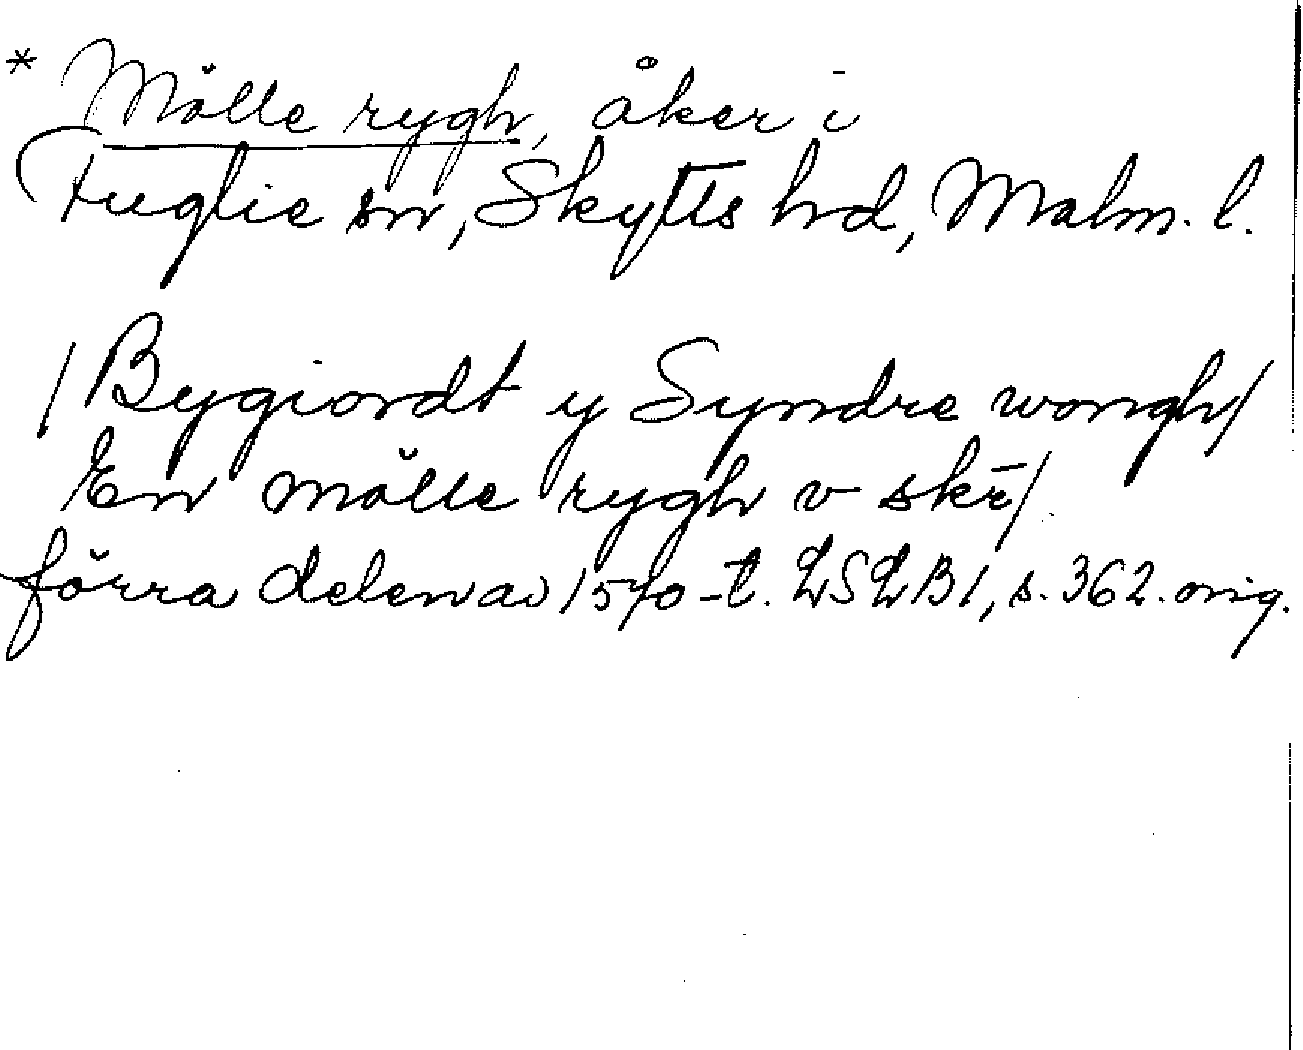 * Mölle rygh, åker i
Fuglie sn, Skytts hd, Malm. l.
/Bygiordt y Syndre wongh/
En mölle rygh v skr̄/
förra delen av 1570-t. LSLB1, s. 362. orig.